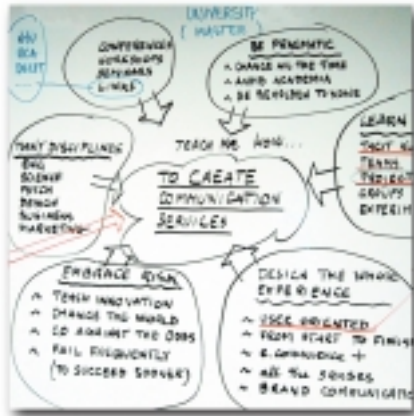 UNIVERSITY
(MASTER)
CONFERENCES
WORKSHOPS
SEMINARS
LINKS
BE PRAGMATIC
CHANGE ALL THE TIME
AVOID ACADEMIA
BE BEHOLDEN TO NONE
TEACH ME HOW...
DISCIPLINES
ENG
SCIENCE
PSYCH
DESIGN
BUSINESS
MARKETING
TO CREATE
COMMUNICATION
SERVICES
LEARN
TEAMS
PROJECT
GROUPS
EXPERIM
EMBRACE RISK
TEACH INNOVATION
CHANGE THE WORLD
GO AGAINST THE ODDS
FAIL FREQUENTLY
(TO SUCCEED SOONER)
DESIGN THE WHOLE
EXPERIENCE
USER ORIENTED
FROM START TO FINISH
E.COMMERCE +
ALL THE SENSES
BRAND COMMUNICATIO